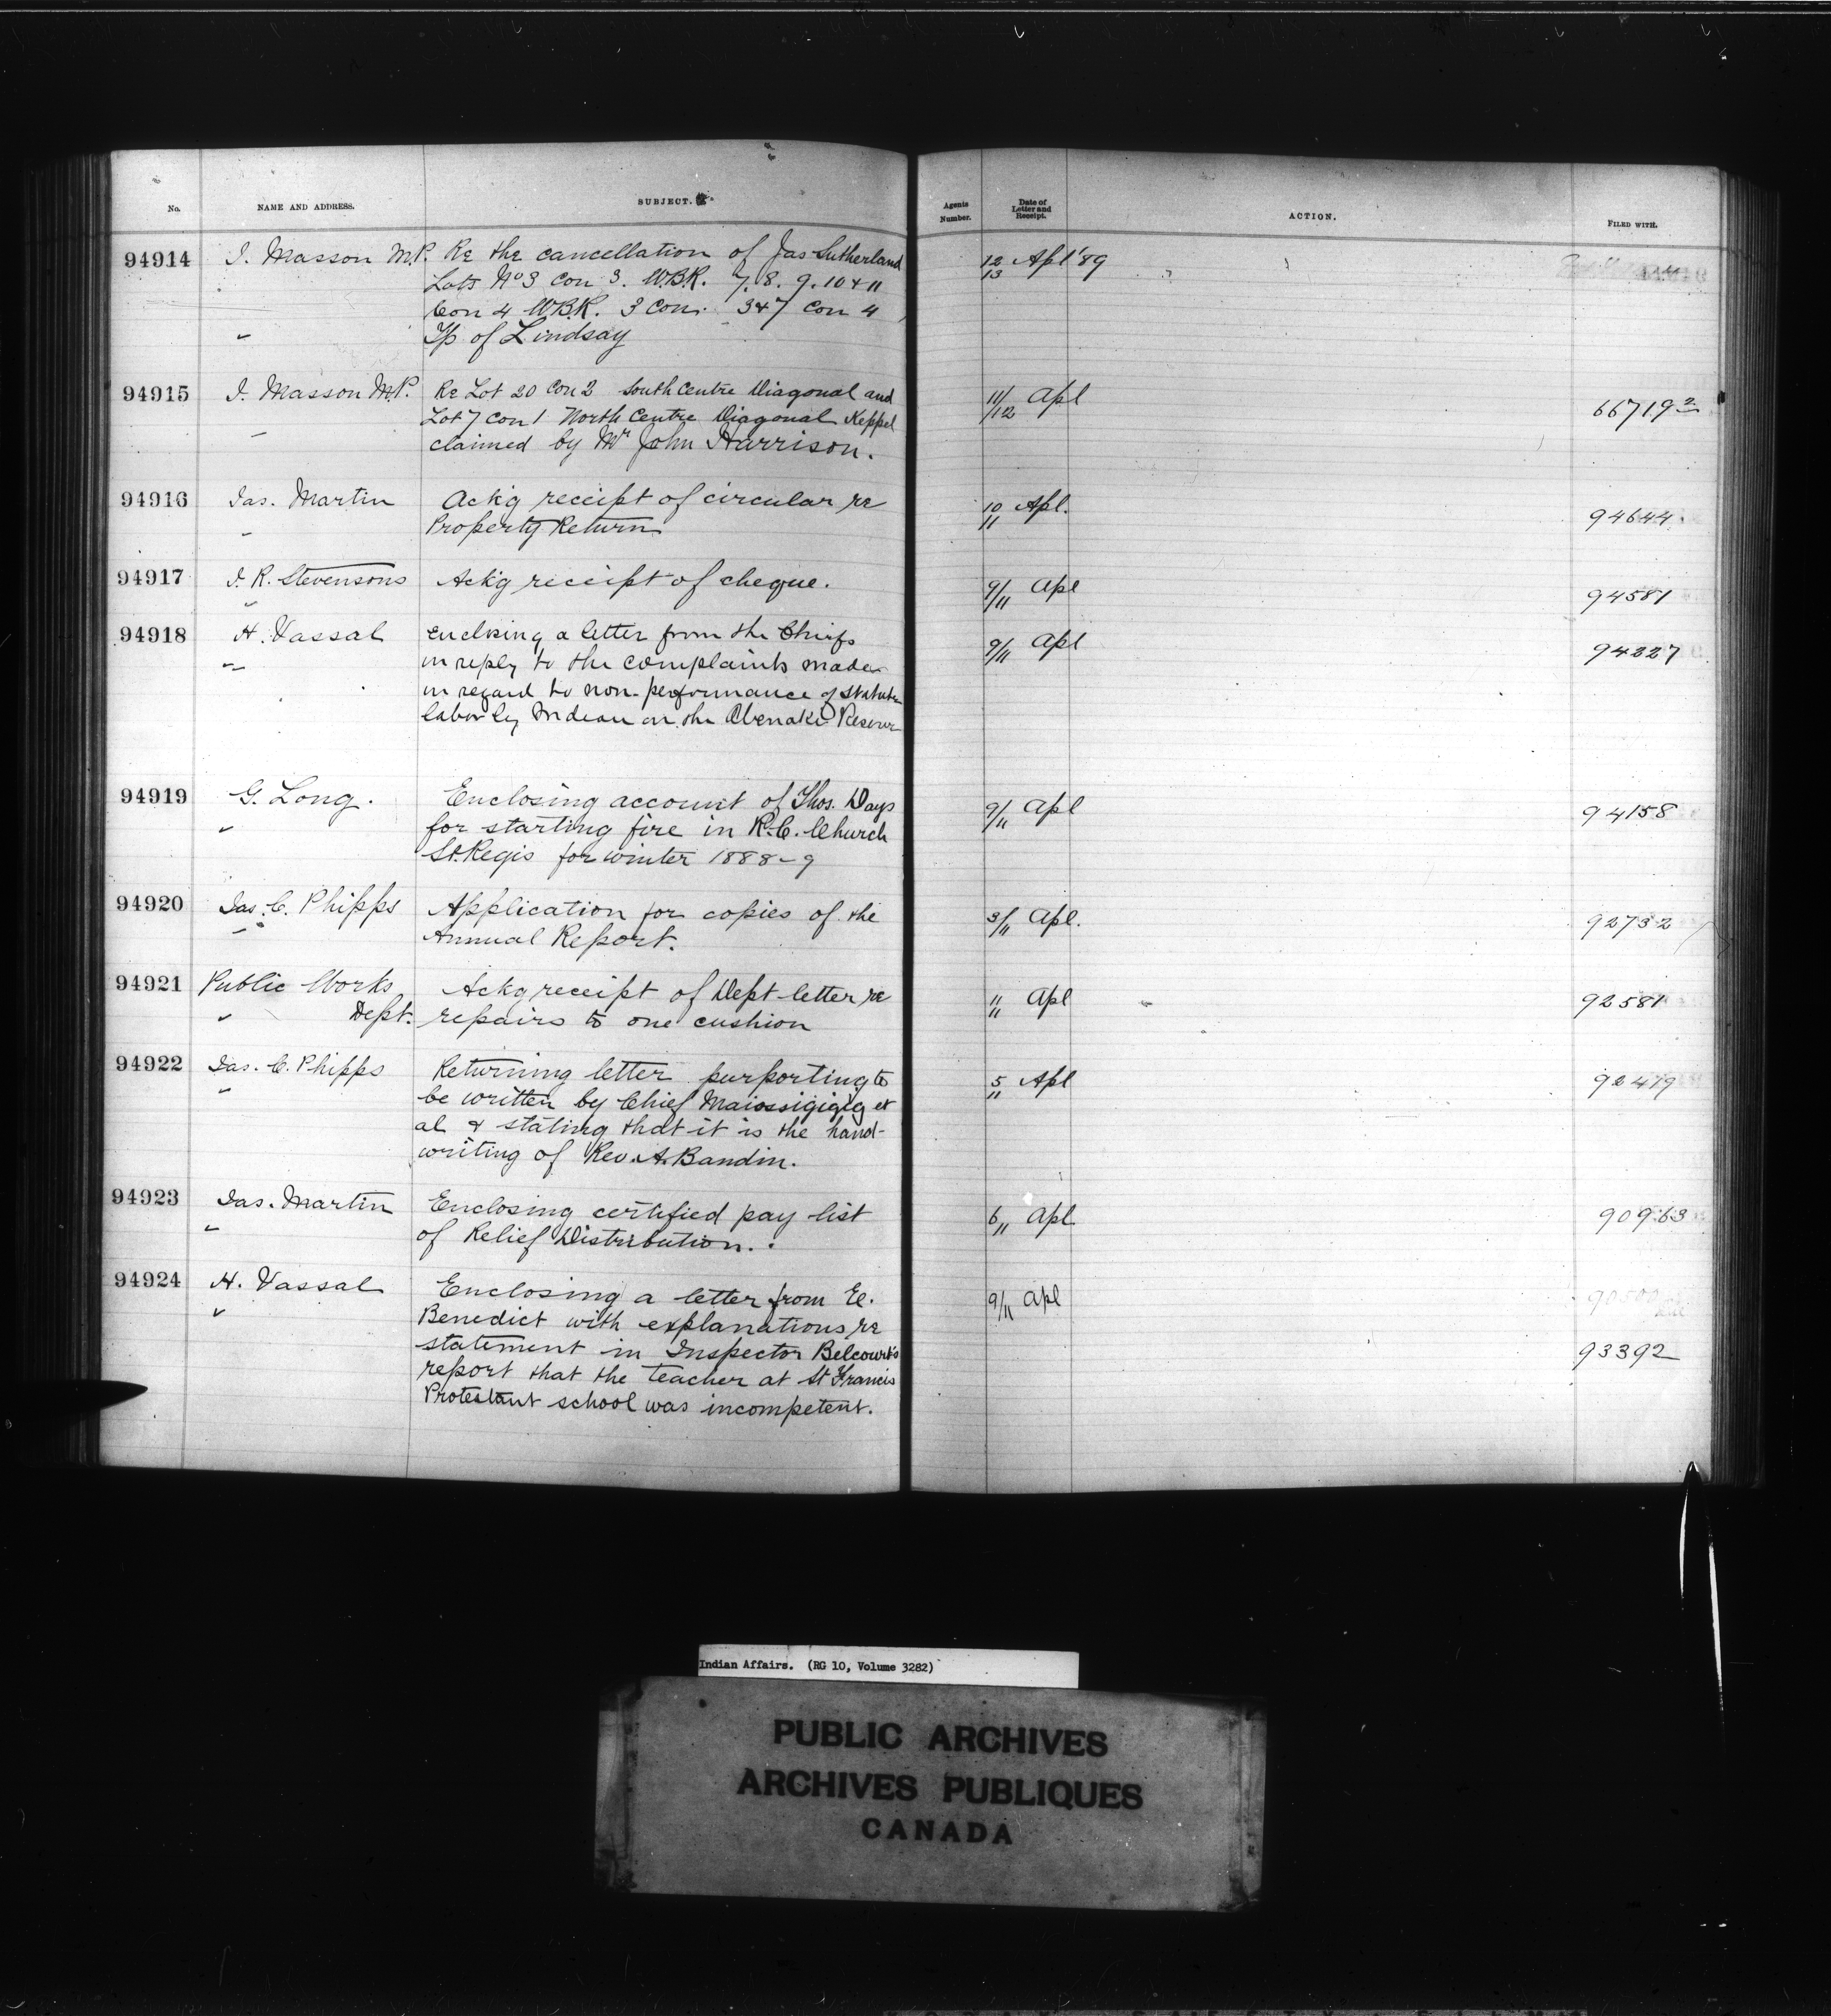 No. NAME AND ADDRESS. SUBJECT. Agents Number. Date of Letter and Receipt. ACTION. FILED WITH.
94914 J. Masson M.P. Re the cancellation of Jas Sutherland 12/13 Apl '89
Lots No 3 Con 3. W.B.R. 7. 8. 9. 10 & 11
Con 4 W.B.R. 3 Con. 3 & 7 Con 4
" Tp of Lindsay
94915 J. Masson M.P. Re Lot 20 Con 2 South Centre Diagonal and 11/12 Apl 66719 2
Lot 7 Con 1 North Centre Diagonal Keppel
" claimed by Mr John Harrison.
94916 Jas. Martin Ackg receipt of circular re 10/11 Apl. 94644
" Property Return
94917 J. R. Stevensons Ackg receipt of cheque. 9/11 Apl 94581
"
94918 H. Vassal enclosing a letter from the Chiefs 9/11 Apl 94227
" in reply to the complaints made
in regard to non-performance of statute
labor by Indian on the Abenakis Reserve
94919 G. Long. Enclosing account of Thos. Days 9/11 Apl 94158
" for starting fire in R.C. Church
St. Regis for winter 1888-9
94920 Jas. C. Phipps Application for copies of the 3/11 Apl. 92732
" Annual Report.
94921 Public Works Ackg receipt of Dept letter re 11 Apl 92581
" Dept. repairs to one cushion
94922 Jas. C. Phipps Returning letter purporting to 5/11 Apl 92479
" be written by Chief Maiossigigig et
al & stating that it is the hand-
writing of Rev. A. Bandin.
94923 Jas. Martin Enclosing certified pay list 6/11 Apl 90963
" of Relief Distribution.
94924 H. Vassal Enclosing a letter from El. 9/11 Apl
" Benedict with explanations re
statement in Inspector Belcourt's 93392
report that the teacher at St Francis
Protestant school was incompetent.
Indian Affairs. (RG 10, Volume 3282)
PUBLIC ARCHIVES
ARCHIVES PUBLIQUES
CANADA